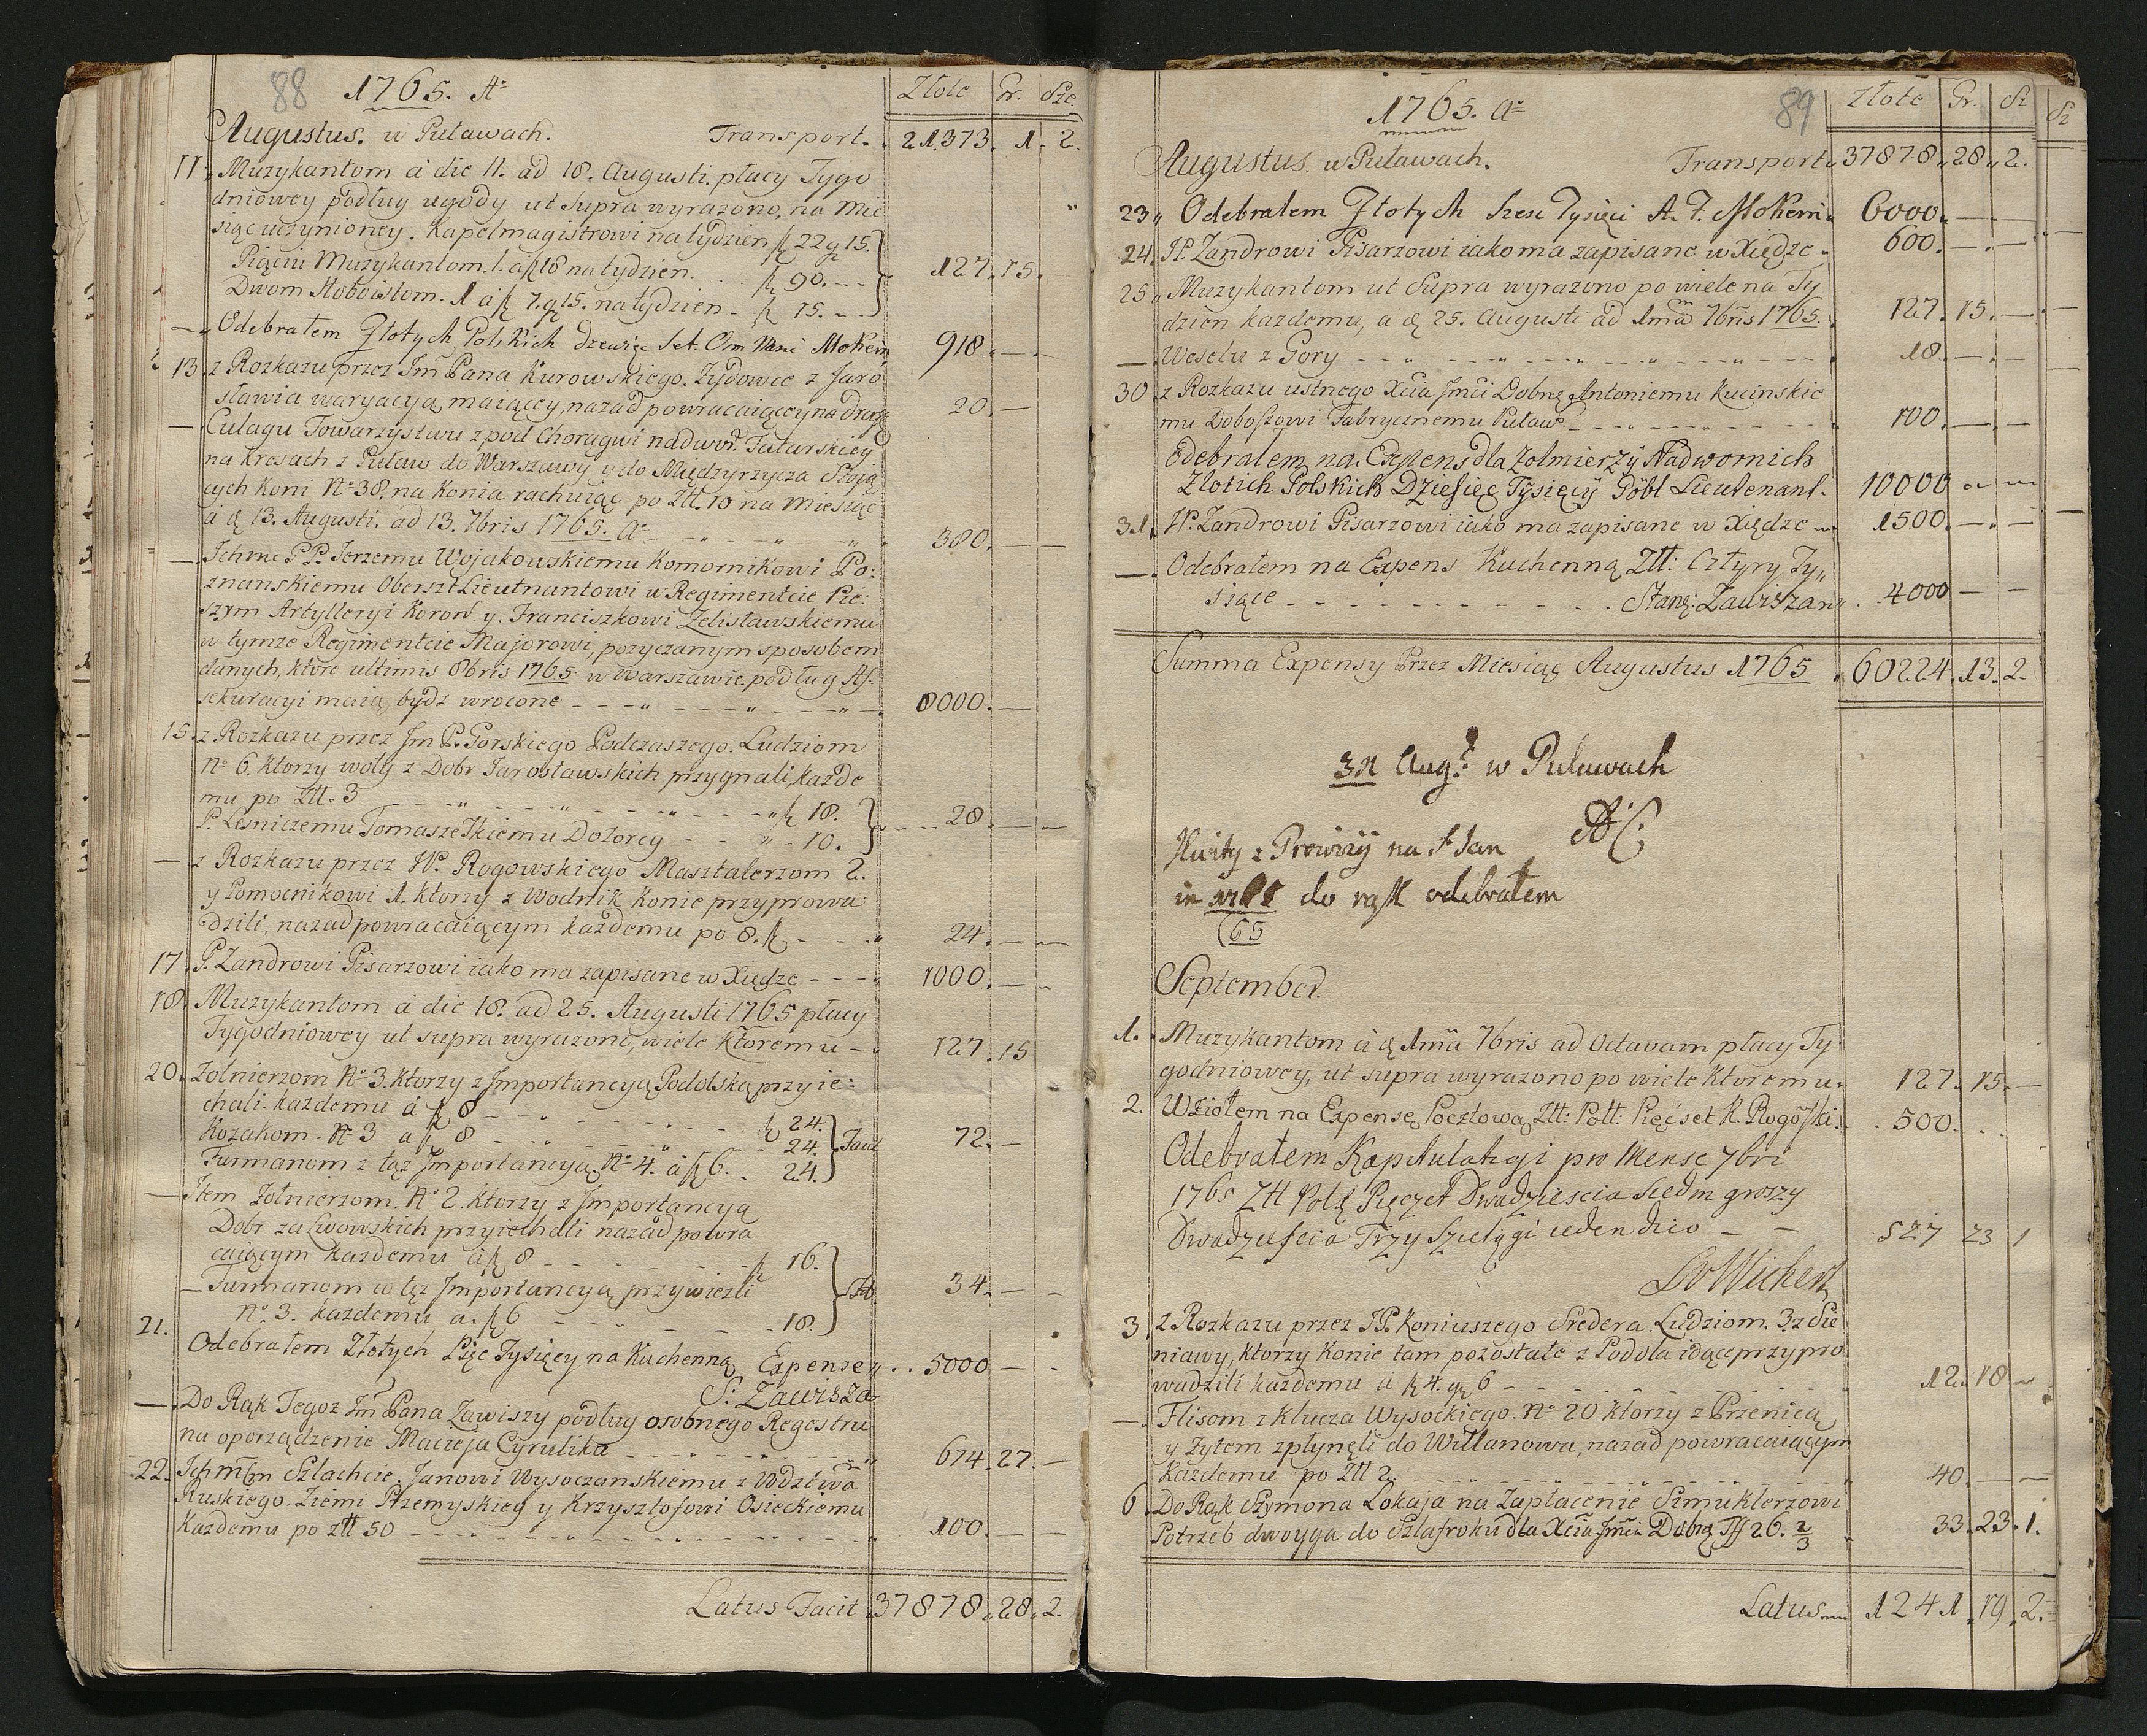 88 1765. Ao Złote Gr. Sze.
Augustus. w Puławach. Transport. 21373. 1. 2.
11. Muzykantom à die 11. ad 18. Augusti. płacy Tygo
dniowey podług ugody ut supra wyrazono, na Mie
siąc uczynioney. Kapelmagistrowi na tydzien f 22 g 15.
Pięciu Muzykantom. 1. à f 18 na tydzien. f 90. 127. 15.
Dwom Hoboistom. 1 à f 7. g 15. na tydzien f 15.
Odebrałem Złotych Polskich dziewięc Set Osm Mokem 918.
13. z Rozkazu przez Jm Pana Kurowskiego. Zydowce z Jaro
sławia waryacyą maiącey, nazad powracaiącey na drogę 20.
Culagu Towarzystwu z pod Choragwi nadwor. Tatarskiey
na kresach z Puław do Warszawy y do Międzyrzycza Stoją
cych Koni No 38. na Konia rachuiąc po Ztt. 10 na Miesiąc
à d 13. Augusti. ad 13. 7bris 1765. Ao 380.
Ichmć PP. Jerzemu Wojakowskiemu Komornikowi Po:
znanskiemu Oberszt Lieutnantowi w Regimentcie Pie:
szym Artylleryi Koron. y. Franciszkowi Zelisławskiemu
w tymze Regimentcie Majorowi, pozyczanym sposobem
danych, ktore ultimis 8bris 1765. w Warszawie podług As-
sekuracyi maią bydz wrocone 8000.
15. z Rozkazu przez Jm P. Gorskiego Podczaszego. Ludziom
No 6. ktorzy woły z Dobr Jarosławskich przygnali, każde
mu po Ztt. 3 f 18. 28.
P. Lesniczemu Tomaszewskiemu Dozorcy 10.
z Rozkazu przez JP. Rogowskiego Masztalerzom 2.
y Pomocnikowi 1. ktorzy z Wodnik Konie przyprowa
dzili, nazad powracaiącym każdemu po 8. f 24.
17. P. Zandrowi Pisarzowi iako ma zapisane w Xiędze 1000.
18. Muzykantom à die 18. ad 25. Augusti 1765 płacy
Tygodniowey ut supra wyrazono, wiele ktoremu 127. 15
20. Zołnierzom No 3. ktorzy z Importancyą Podolską przyie:
chali. każdemu à f 8 f 24.
Kozakom. No 3 à f 8 24. Facit 72.
Furmanom z tąż Importancyą No 4. à f 6. 24.
Item Zołnierzom. No 2. ktorzy z Importancyą
Dobr za Lwowskich przyiechali nazad powra
caiącym każdemu à f 8 f 16.
Furmanom co tęz Importancyą przywiezli 34.
No 3. każdemu a f 6 18.
21. Odebrałem Złotych Pięc Tysięcy na Kuchenną Expensę 5000
S: Zawisza
Do Rąk Tegoz Jm Pana Zawiszy podług osobnego Regestru
na oporządzenie Macieja Cyrulika 674. 27.
22. Ichmćm Szlachcie. Janowi Wysoczanskiemu z Wdztwa
Ruskiego. Ziemi Przemyskiey y Krzysztofowi Osieckiemu
każdemu po ztt 50 100.
Latus Facit 37878. 28. 2.
1765. Ao 89 Złote Gr. Sz Sz
Augustus. w Puławach. Transport 37878. 28. 2.
23. Odebrałem Złotych Szesc Tysięci A. F. Mokem 6000.
24. JP. Zandrowi Pisarzowi iako ma zapisane w Xiędze 600.
25. Muzykantom ut Supra wyrazono po wiele na Ty
dzien kazdemu, à d 25. Augusti ad 1ma 7bris 1765. 127. 15.
Weselu z Gory 18.
30. z Rozkazu ustnego Xcia Jmci Dobrę Antoniemu Kucinskie
mu Doboszowi Fabrycznemu Puław. 100.
Odebralem na Expens dla Zolmierzÿ Nadwornich
Zlotich Polskich Dziesięc Tÿsięcÿ Göbl Lieutenant. 10000
31. JP. Zandrowi Pisarzowi iako ma zapisane w Xiędze 1500.
Odebrałem na Expens Kuchenną Ztt: Cztyry Ty
siące Stanę: Zawiszan 4000
Summa Expensy Przez Miesiąc Augustus 1765 60224. 13. 2.
31 Augt. w Puławach
AC.
Kwity z Prowizij na S Jan
in do rąk odebrałem
65
September.
1. Muzykantom à d 1ma 7bris ad Octavam płacy Ty
godniowey, ut supra wyrazono po wiele ktoremu. 127. 15.
2. Wziołem na Expensę Pocztową Ztt: Polt: Pięcset K. Rogowski. 500.
Odebrałem Kapitulatigi pro Mense 7bri
1765 Ztt Polę Pięczet Dwadziescia Siedm groszy
Dwadziescia Trzy Szelągi ieden dico 527 23 1
Wickert
3 z Rozkazu przez JP. Koniuszego Sredera. Ludziom. 3. z Sie
niawy, ktorzy Konie tam pozostałe z Podola idące przypro
wadzili każdemu à f 4. gr 6 12. 18
Flisom z Klucza Wysockiego. No 20 ktorzy z Przenicą
y Zytem zpłynęli do Willanowa, nazad powracaiącym
każdemu po Ztt 2. 40.
6. Do Rąk Szymona Lokaja na Zapłacenie Szmuklerzowi
Potrzeb dwoyga do Szlafroku dla Xcia Jmci Dobrę Tff 26. 2/3 33. 23. 1.
Latus 1241. 19. 2.